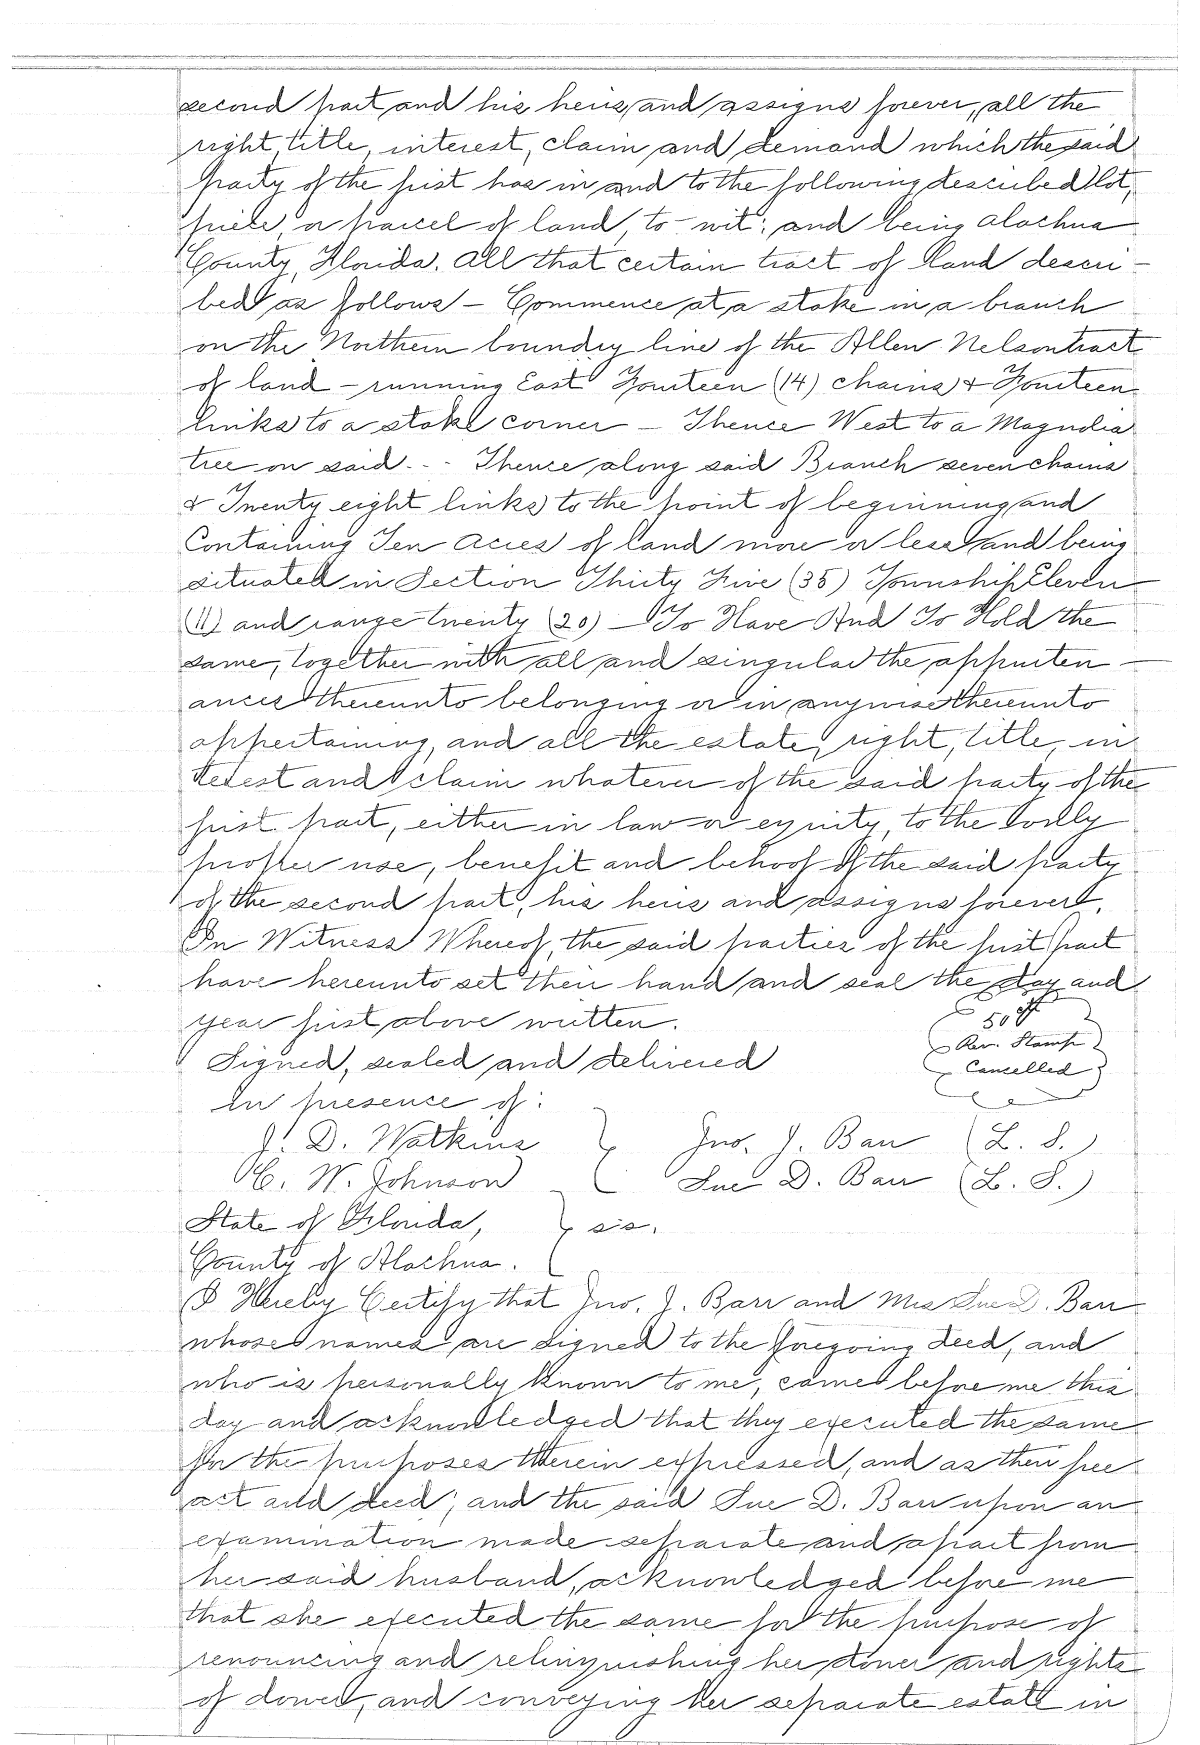 second part and his heirs, and assigns forever, all the
right, title, interest, claim and demand which the said
party of the first has in and to the following described lot,
piece or parcel of land, to-wit: and being Alachua
County, Florida. All that certain tract of land descri-
bed as follows - Commence at a stake in a branch
on the Northern boundry line of the Allen Nelson tract
of land - running East Fourteen (14) chains & Fourteen
links to a stake corner - Thence West to a Magnolia
tree on said - - - Thence along said Branch seven chains
& Twenty eight links to the point of beginning and
Containing Ten Acres of land more or less and being
situated in Section Thirty Five (35) Township Eleven
(11) and range twenty (20) - To Have And To Hold the
same, together with all and singular the appurten-
ances thereunto belonging or in anywise thereunto
appertaining, and all the estate, right, title, in
terest and claim whatever of the said party of the
first part, either in law or equity, to the only
proper use, benefit and behoof of the said party
of the second part, his heirs and assigns forever.
In Witness Whereof, the said parties of the first part
have hereunto set their hand and seal the day and
year first above written.
50
Rev. Stamp
Cancelled
Signed, sealed and delivered
in presence of:
J. D. Watkins } Jno. J. Barr (L. S.)
C. W. Johnson Sue D. Barr (L. S.)
State of Florida, } s.s.
County of Alachua.
I Hereby Certify that Jno. J. Barr and Mrs Sue D. Barr
whose names are signed to the foregoing deed, and
who is personally known to me, came before me this
day and acknowledged that they executed the same
for the purposes therein expressed, and as their free
act and deed; and the said Sue D. Barr upon an
examination made separate and apart from
her said husband, acknowledged before me
that she executed the same for the purpose of
renouncing and relinquishing her dower and rights
of dower, and conveying her separate estate in